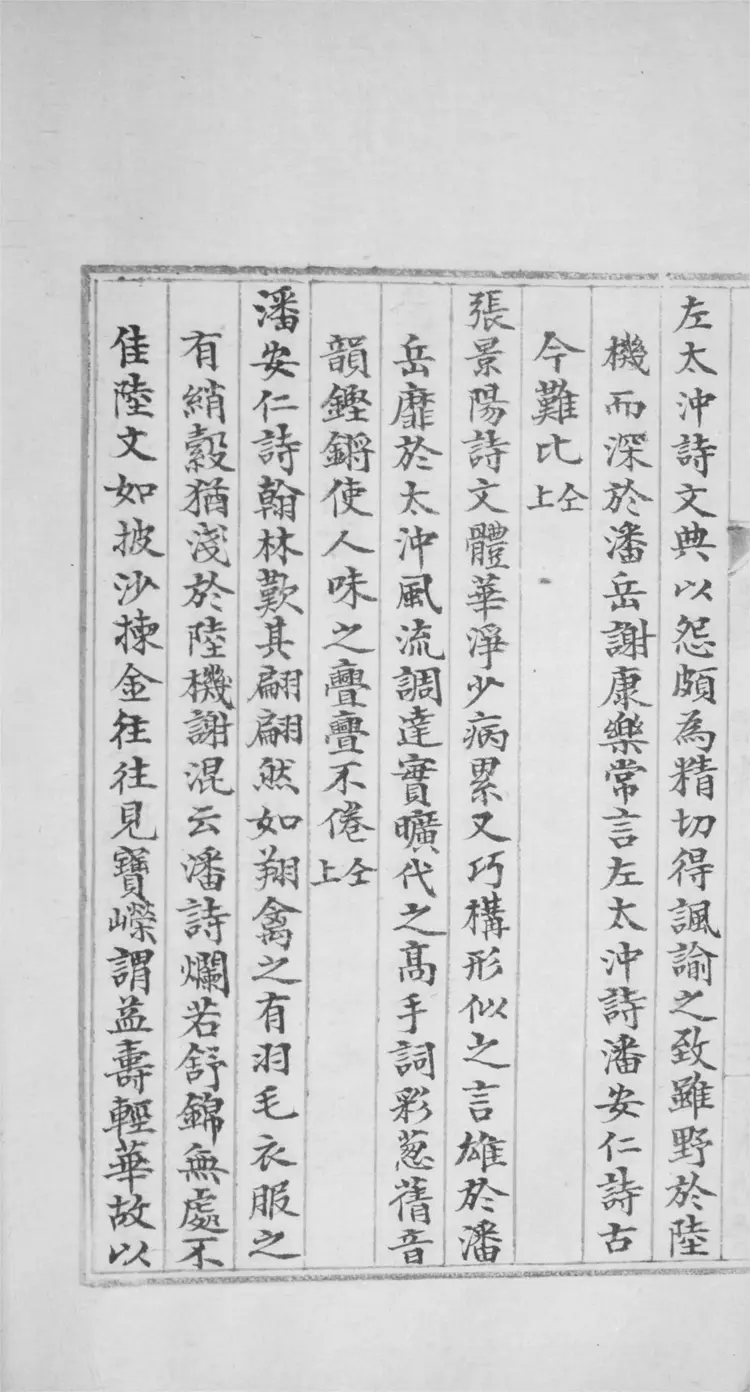 左太沖詩文典以怨頗為精切得諷諭之致雖野於陸
機而深於潘岳謝康樂常言左太沖詩潘安仁詩古
今難比仝上
張景陽詩文體華淨少病累又巧構形似之言雄於潘
岳靡於太沖風流調達實曠代之高手詞彩葱蒨音
韻鏗鏘使人味之亹亹不倦仝上
潘安仁詩翰林歎其翩翩然如翔禽之有羽毛衣服之
有綃縠猶淺於陸機謝混云潘詩爛若舒錦無處不
佳陸文如披沙揀金往往見寶嶸謂益壽輕華故以